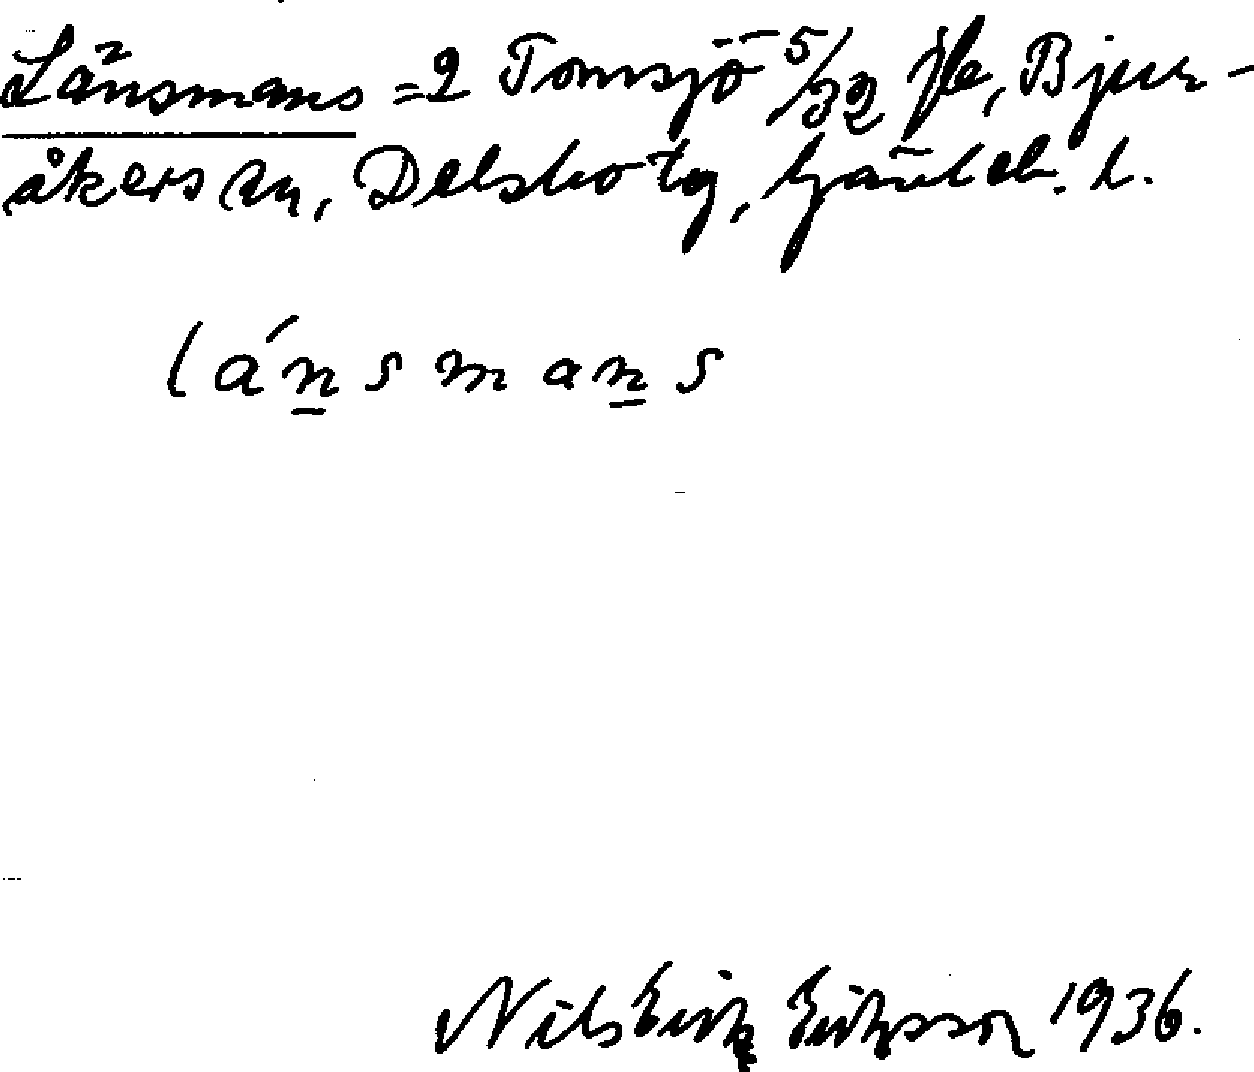 Länsmans = 2 Tomsjö 5/32 fk, Bjur-
åkers sn, Delsbo tg, Gävleb. l.
lánsmans
Nils Erik Eriksson 1936.